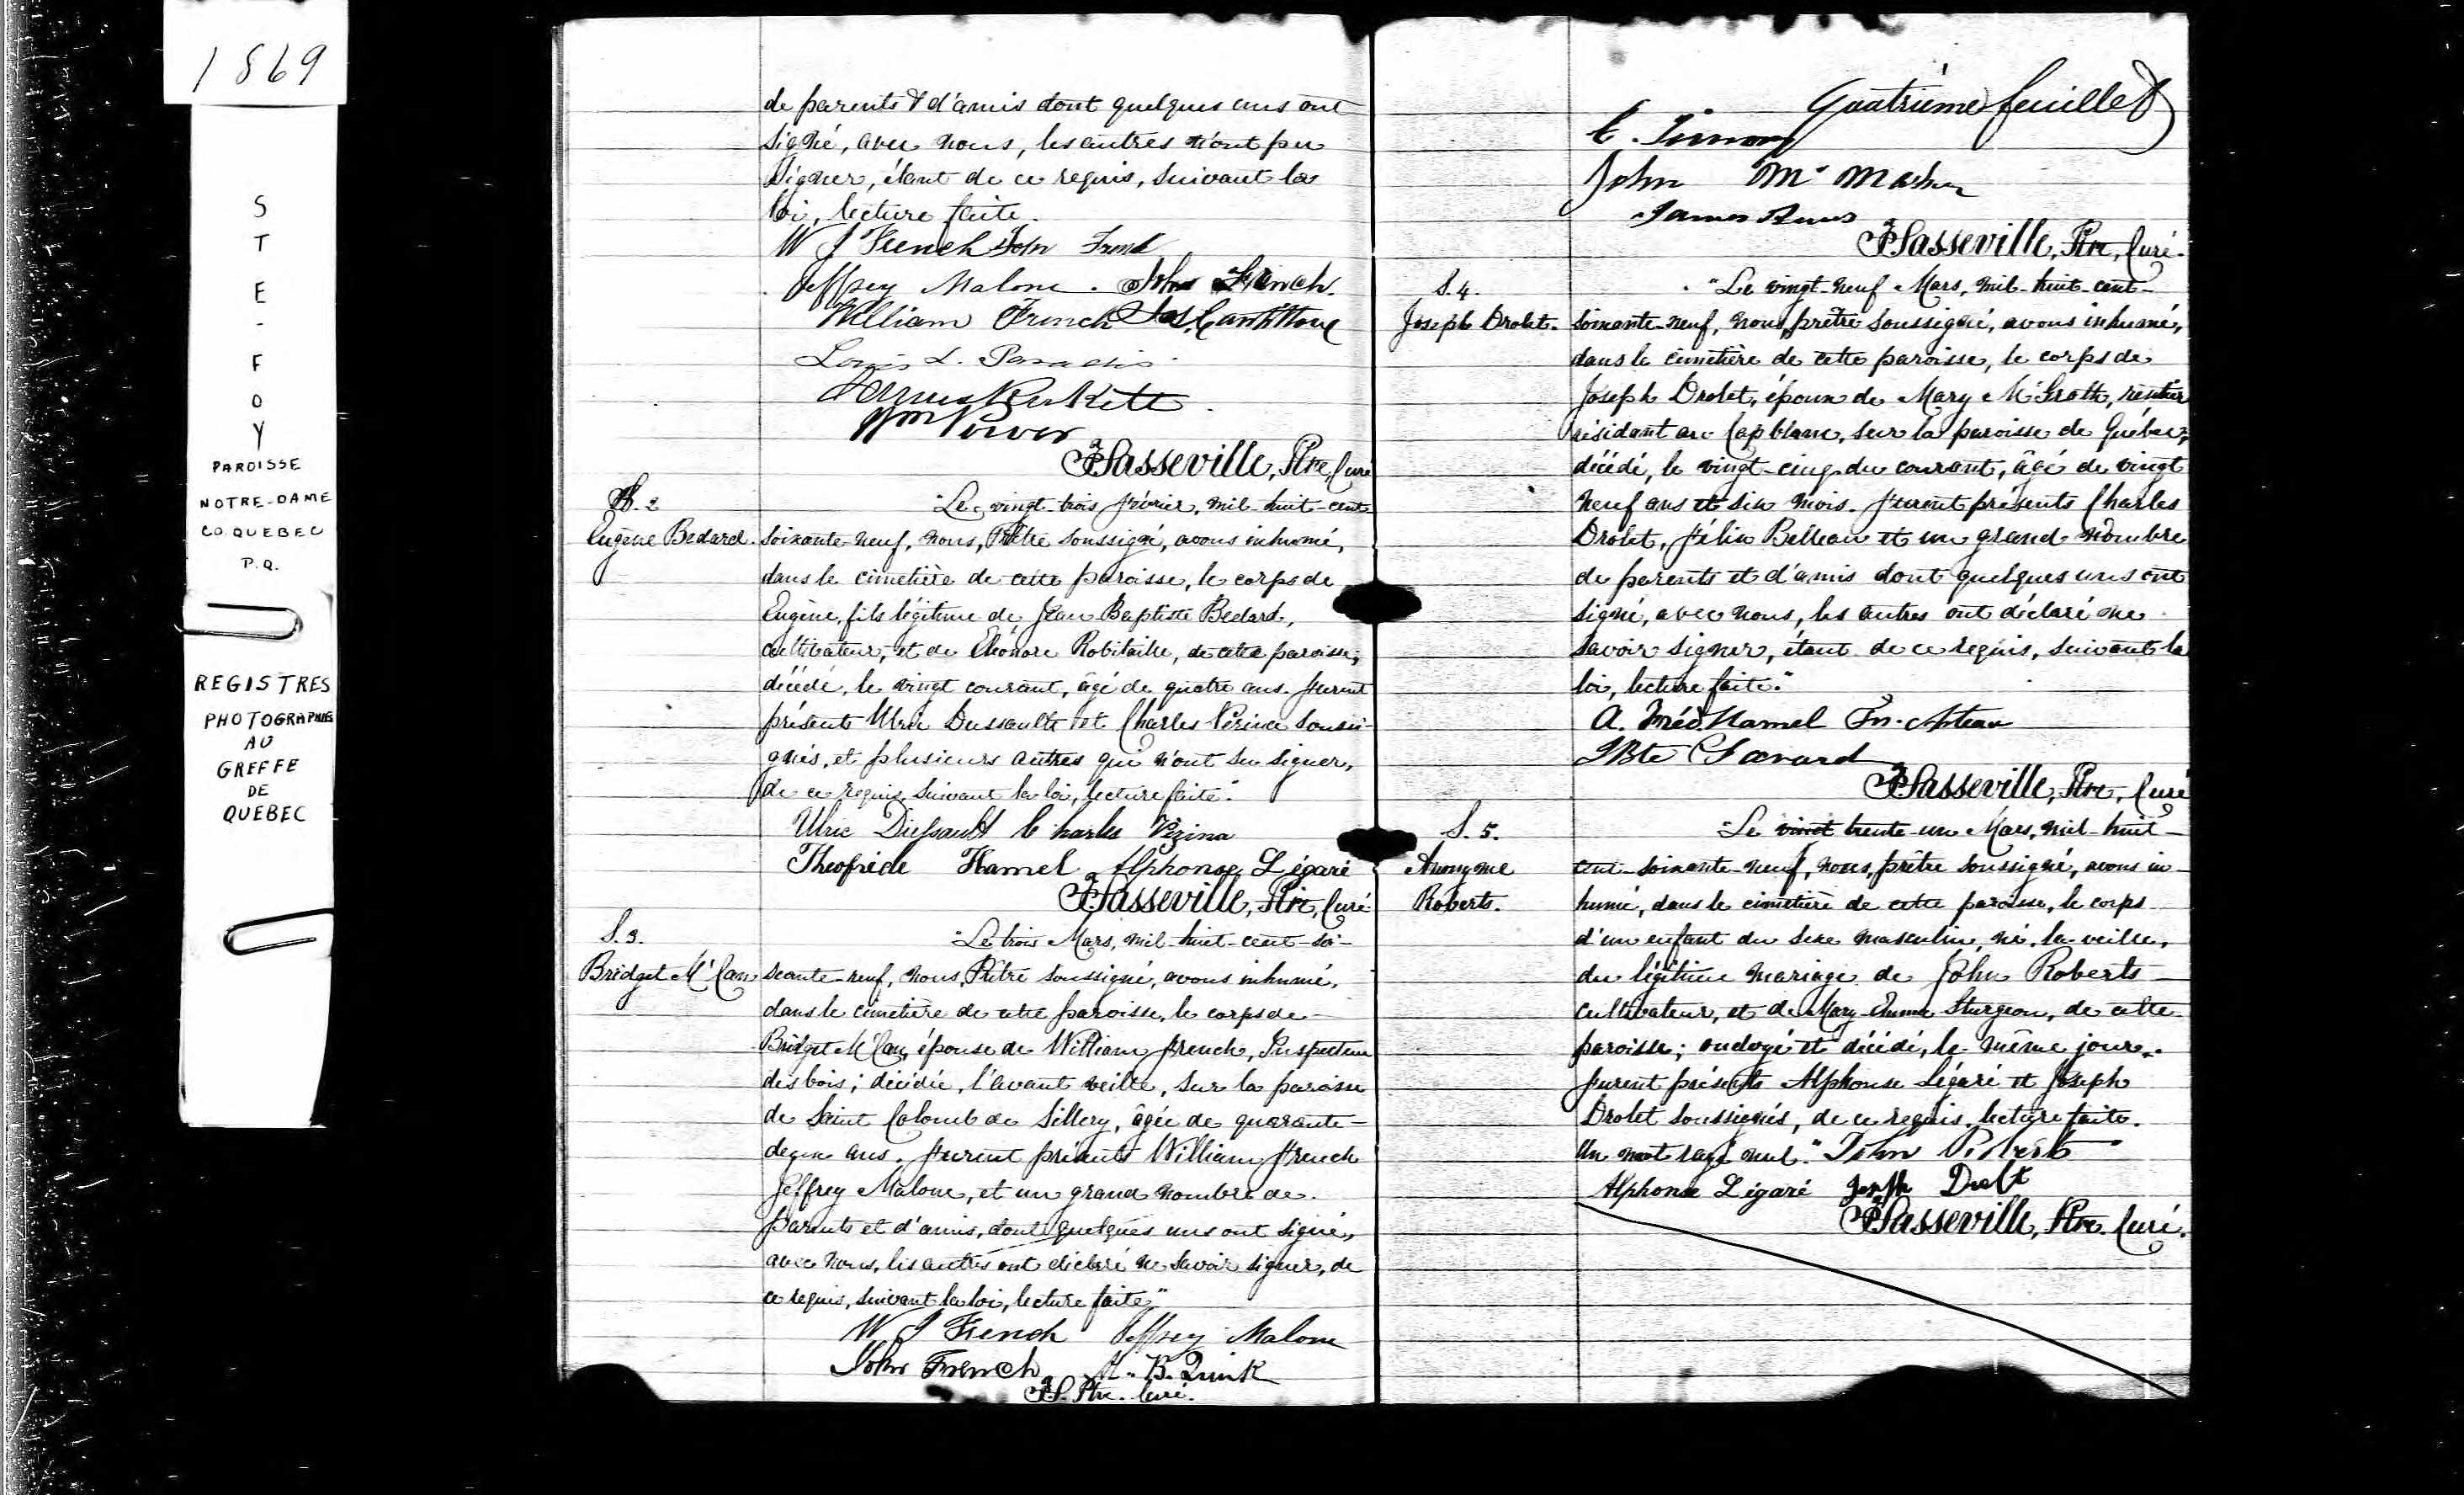 1869
STE-FOY
PAROISSE
NOTRE-DAME
CO. QUEBEC
P.Q.
REGISTRES
PHOTOGRAPHIÉS
AU
GREFFE
DE
QUEBEC
de parents & d'amis dont quelques uns ont
signé, avec nous, les autres n'ont pu
signer, étant de ce requis, suivant la
loi, lecture faite.
W J French John
Jeffrey Malone. John French.
William French Jas
Louis L. Paradis
Wm Power
Sasseville, Ptre, Curé
S. 2
Eugène Bedard.
"Le vingt-trois février, mil-huit-cent
soixante-neuf, nous, Prêtre soussigné, avons inhumé,
dans le cimetière de cette paroisse, le corps de
Eugène, fils légitime de Jean Baptiste Bedard,
cultivateur, et de Eléonore Robitaille, de cette paroisse,
décédé, le vingt courant, âgé de quatre ans. furent
présents Ulric Dussault et Charles Vézina soussi-
gnés, et plusieurs autres qui n'ont su signer,
de ce requis, suivant la loi, lecture faite."
Ulric Dussault Charles Vézina
Hamel Alphonse Légaré
Sasseville, Ptre, Curé
S. 3.
Bridget
"Le trois Mars, mil-huit-cent-soi-
xante-neuf, nous, Prêtre soussigné, avons inhumé,
dans le cimetière de cette paroisse, le corps de
Bridget épouse de William French, Inspecteur
des bois; décédée, l'avant veille, sur la paroisse
de Saint Colomb de Sillery, âgée de quarante-
deux ans. furent présents William French
Jeffrey Malone, et un grand nombre de
parents et d'amis, dont quelques uns ont signé,
avec nous, les autres ont déclaré ne savoir signer, de
ce requis, suivant la loi, lecture faite"
W J French Jeffrey Malone
John French
Ptre. Curé.
Quatrième feuillet
John
James
Sasseville, Ptre, Curé.
S. 4.
Joseph Drolet.
"Le vingt-neuf Mars, mil-huit-cent-
soixante-neuf, nous, prêtre soussigné, avons inhumé,
dans le cimetière de cette paroisse, le corps de
Joseph Drolet, époux de Mary McGrath, rentier
résidant au Cap blanc, sur la paroisse de Québec,
décédé, le vingt-cinq du courant, âgé de vingt
neuf ans et six mois. furent présents Charles
Drolet, félix Belleau et un grand nombre
de parents et d'amis dont quelques uns ont
signé, avec nous, les autres ont déclaré ne
savoir signer, étant de ce requis, suivant la
loi, lecture faite."
A. Méd. Hamel
JBte Savard
Sasseville, Ptre, Curé
S. 5.
Anonyme
Roberts.
"Le vingt trente-un Mars, mil-huit-
cent-soixante-neuf, nous, prêtre soussigné, avons in-
humé, dans le cimetière de cette paroisse, le corps
d'un enfant du sexe masculin, né, la veille,
du légitime mariage de John Roberts
cultivateur, et de Mary-Anne Sturgeon, de cette
paroisse; ondoyé et décédé, le même jour.
furent présents Alphonse Légaré et Joseph
Drolet soussignés, de ce requis, lecture faite.
Un mot rayé nul." John Roberts
Alphonse Légaré Joseph Drolet
Sasseville, Ptre. Curé.